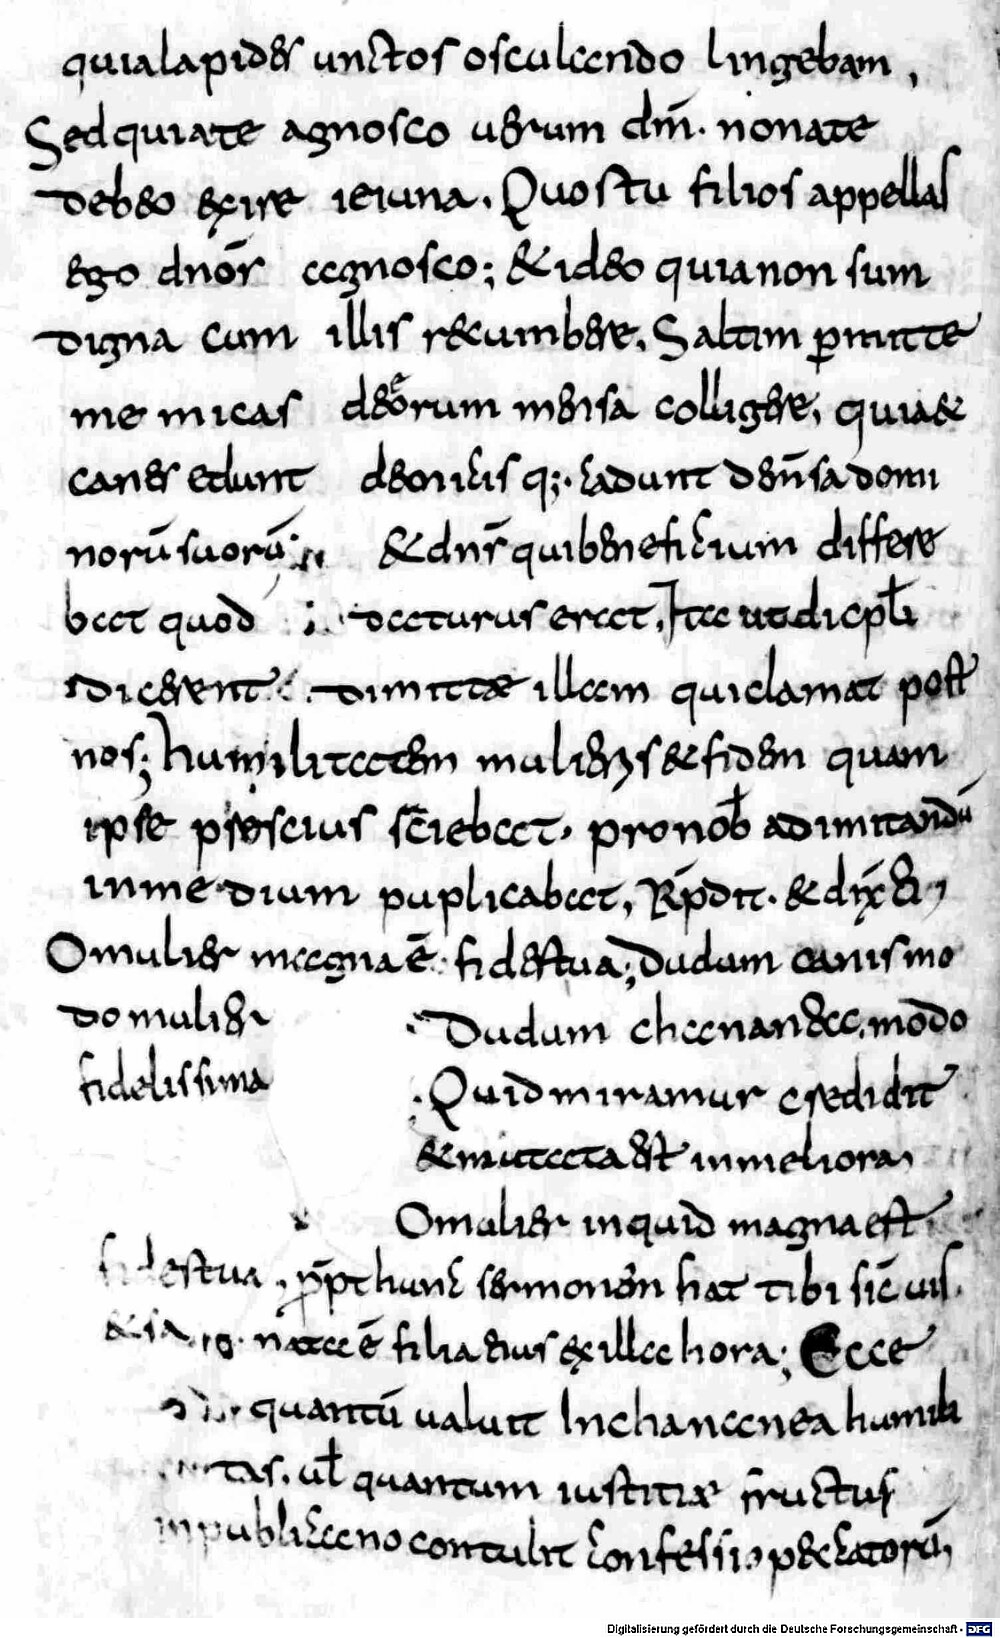 quialapides unctos osculando lingebam,
Sedquiate agnosco uerum dm̄. nonate
debeo exire ieiuna. Quostu filios appellas
ego dnōs agnosco; & ideo quianon sum
digna cum illis recumbere, Saltim ꝑmitte
me micas deeorum mensa colligere, quia&
canes edunt demicis q;. cadunt demn̄sa domi
norū suorū; & dn̄s quibeneficium differe
bat quod daturus erat, Ita utdiscipl̄i
dicerent. dimitte illam quiclamat post
nos; humilitatem mulieris & fidem quam
ipse p̱rescius sciebat. pronob̄ adimitandū
inmedium puplicabat, Rp̄dit. & dix̄ ei,
Omulier magna ē. fidestua; Dudum canis mo
do mulier Dudum chananea. modo
fidelissima Quidmiramur credidit
& mutata est inmeliora,
Omulier inquid magna est
fidestua, pp̄t hunc sermonem fiat tibi sic̄ uis.
& sanata ē filia eius exilla hora; Ecce
quantū ualuit Inchananea humili
tas. ul̄ quantum iustitiae fructus
inpublicano contulit confessio peccatorū,
Digitalisierung gefördert durch die Deutsche Forschungsgemeinschaft - DFG